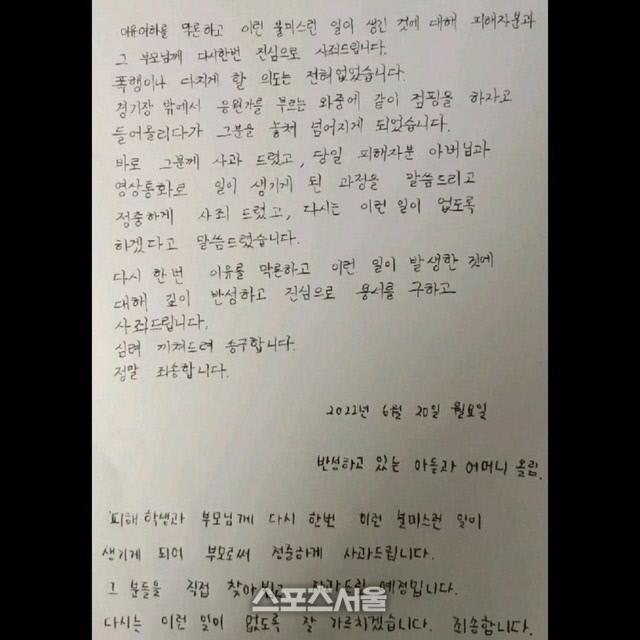 이유여하를 막론하고 이런 불미스런 일이 생긴 것에 대해 피해자분과
그 부모님께 다시한번 진심으로 사죄드립니다.
폭행이나 다치게 할 의도는 전혀없었습니다.
경기장 밖에서 응원가를 부르는 와중에 같이 점핑을 하자고
들어올리다가 그분을 놓쳐 넘어지게 되었습니다.
바로 그분께 사과 드렸고, 당일 피해자분 아버님과
영상통화로 일이 생기게 된 과정을 말씀드리고
정중하게 사죄 드렸고, 다시는 이런 일이 없도록
하겠다고 말씀드렸습니다.
다시 한번 이유를 막론하고 이런 일이 발생한 것에
대해 깊이 반성하고 진심으로 용서를 구하고
사죄드립니다.
심려 끼쳐드려 송구합니다.
정말 죄송합니다.
2022년 6월 20일 월요일
반성하고 있는 아들과 어머니 올림.
피해학생과 부모님께 다시 한번 이런 불미스런 일이
생기게 되어 부모로써 정중하게 사과드립니다.
그 분들을 직접 찾아뵙고 예정입니다.
스포츠서울
다시는 이런 일이 없도록 잘 가르치겠습니다. 죄송합니다.